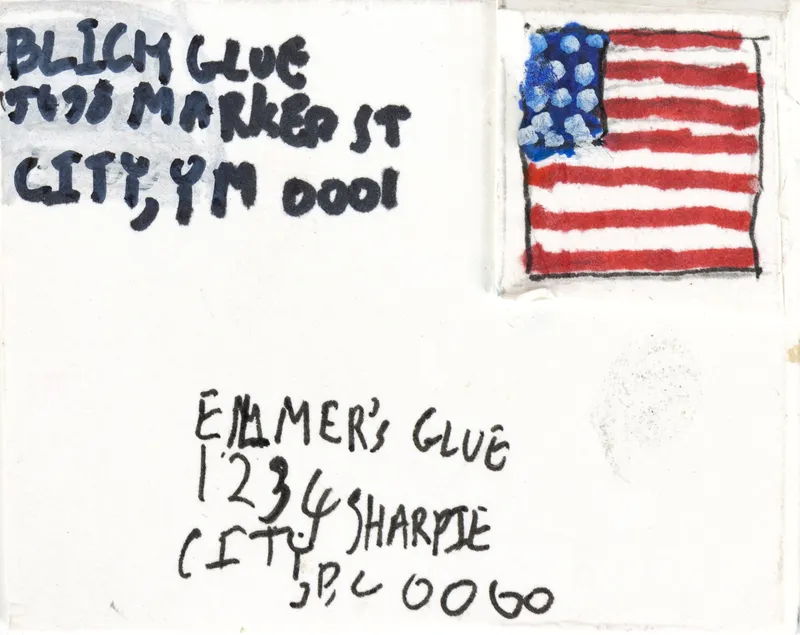 BLICH GLUE
MARKER ST
CITY, YM 0001
EMMER'S GLUE
1234 SHARPIE
CITY, P, C 0060